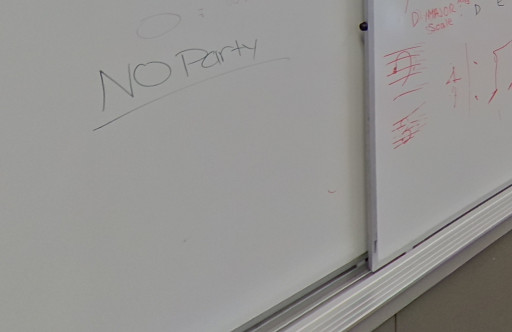 NO Party
D MAJOR
Scale
D E